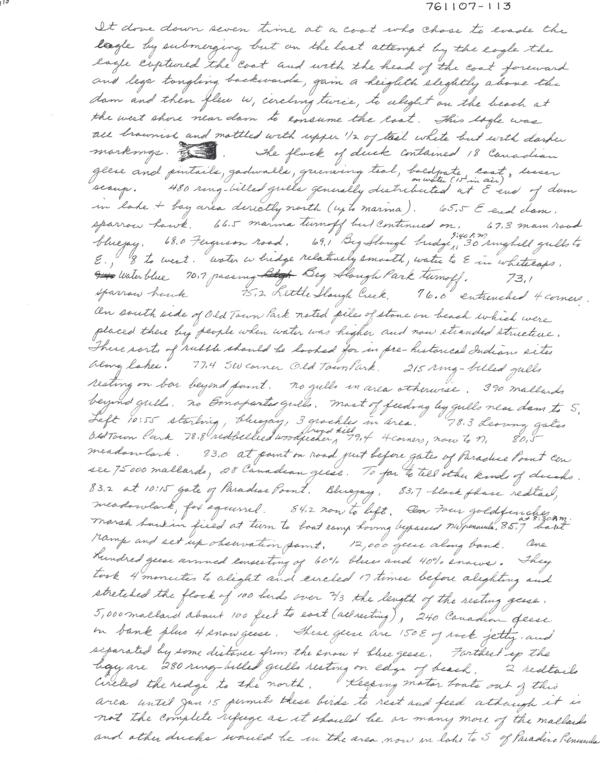 761107-113
It dove down seven time at a coot who chose to evade the
eagle by submerging but on the last attempt by the eagle the
eagle captured the coot and with the head of the coot foreward
and legs tangling backwards, gain a heighth slightly above the
dam and then flew W, circling twice, to alight on the beach at
the west shore near dam to consume the coot. This eagle was
all brownish and mottled with upper 1/2 of tail white but with darker
markings. The flock of duck contained 18 Canadian
geese and pintails, gadwalls, greenwing teal, baldpate, coot, lesser
scaup. 480 ring-billed gulls on water (15 in air) generally distributed at E end of dam
in lake + bay area directly north (up to marina). 65.5 E end dam.
sparrow hawk. 66.5 marina turnoff but continued on. 67.3 main road
bluejay. 68.0 Ferguson road. 69.1 Big Slough bridge, 9:40 A.M. 30 ringbill gulls to
E., 3 to west. water w bridge relatively smooth, water to E in whitecaps.
Water blue 70.7 passing Big Slough Park turnoff. 73.1
sparrow hawk 75.2 Little Slough Creek. 76.0 entrenched 4 corners.
On south side of Old Town Park noted piles of stone on beach which were
placed there by people when water was higher and now stranded structure.
These sorts of rubble should be looked for in pre-historical Indian sites
along lakes. 77.4 SW corner Old Town Park. 215 ring-billed gulls
resting on bar beyond point. no gulls in area otherwise. 390 mallards
beyond gulls. no Bonapartes gulls. Most of feeding by gulls near dam to S.
Left 10:55 starling, bluejay, 3 grackles in area. 78.3 Leaving gates
Old Town Park 78.8 redbellied woodpecker, road kill 79.4 4 corners, now to N. 80.5
meadowlark. 83.0 at point on road just before gates of Paradise Point can
see 75000 mallards, 08 Canadian geese. To far to tell other kinds of ducks.
83.2 at 10:15 gate of Paradise Point. Bluejay. 83.7 black phase redtail,
meadowlark, fox squirrel. 84.2 now to left. Four goldfinches
marsh hawk in field at turn to boat ramp having bypassed NW peninsula. 85.7 boat
ramp and set up observation point. 12,000 geese along bank. One
hundred geese arrived consisting of 60% blues and 40% snows. They
took 4 minutes to alight and circled 17 times before alighting and
stretched the flock of 100 birds over 2/3 the length of the resting geese.
5,000 mallard about 100 feet to east (all resting), 240 Canadian geese
on bank plus 4 snow geese. These geese are 150 E of rock jetty and
separated by some distance from the snow + blue geese. Farthest up the
bay are 280 ring-billed gulls resting on edge of beach. 2 redtails
circled the redge to the north. Keeping motor boats out of this
area until Jan 15 permits these birds to rest and feed although it is
not the complete refuge as it should be or many more of the mallards
and other ducks would be in the area now in lake to S of Paradise Peninsula